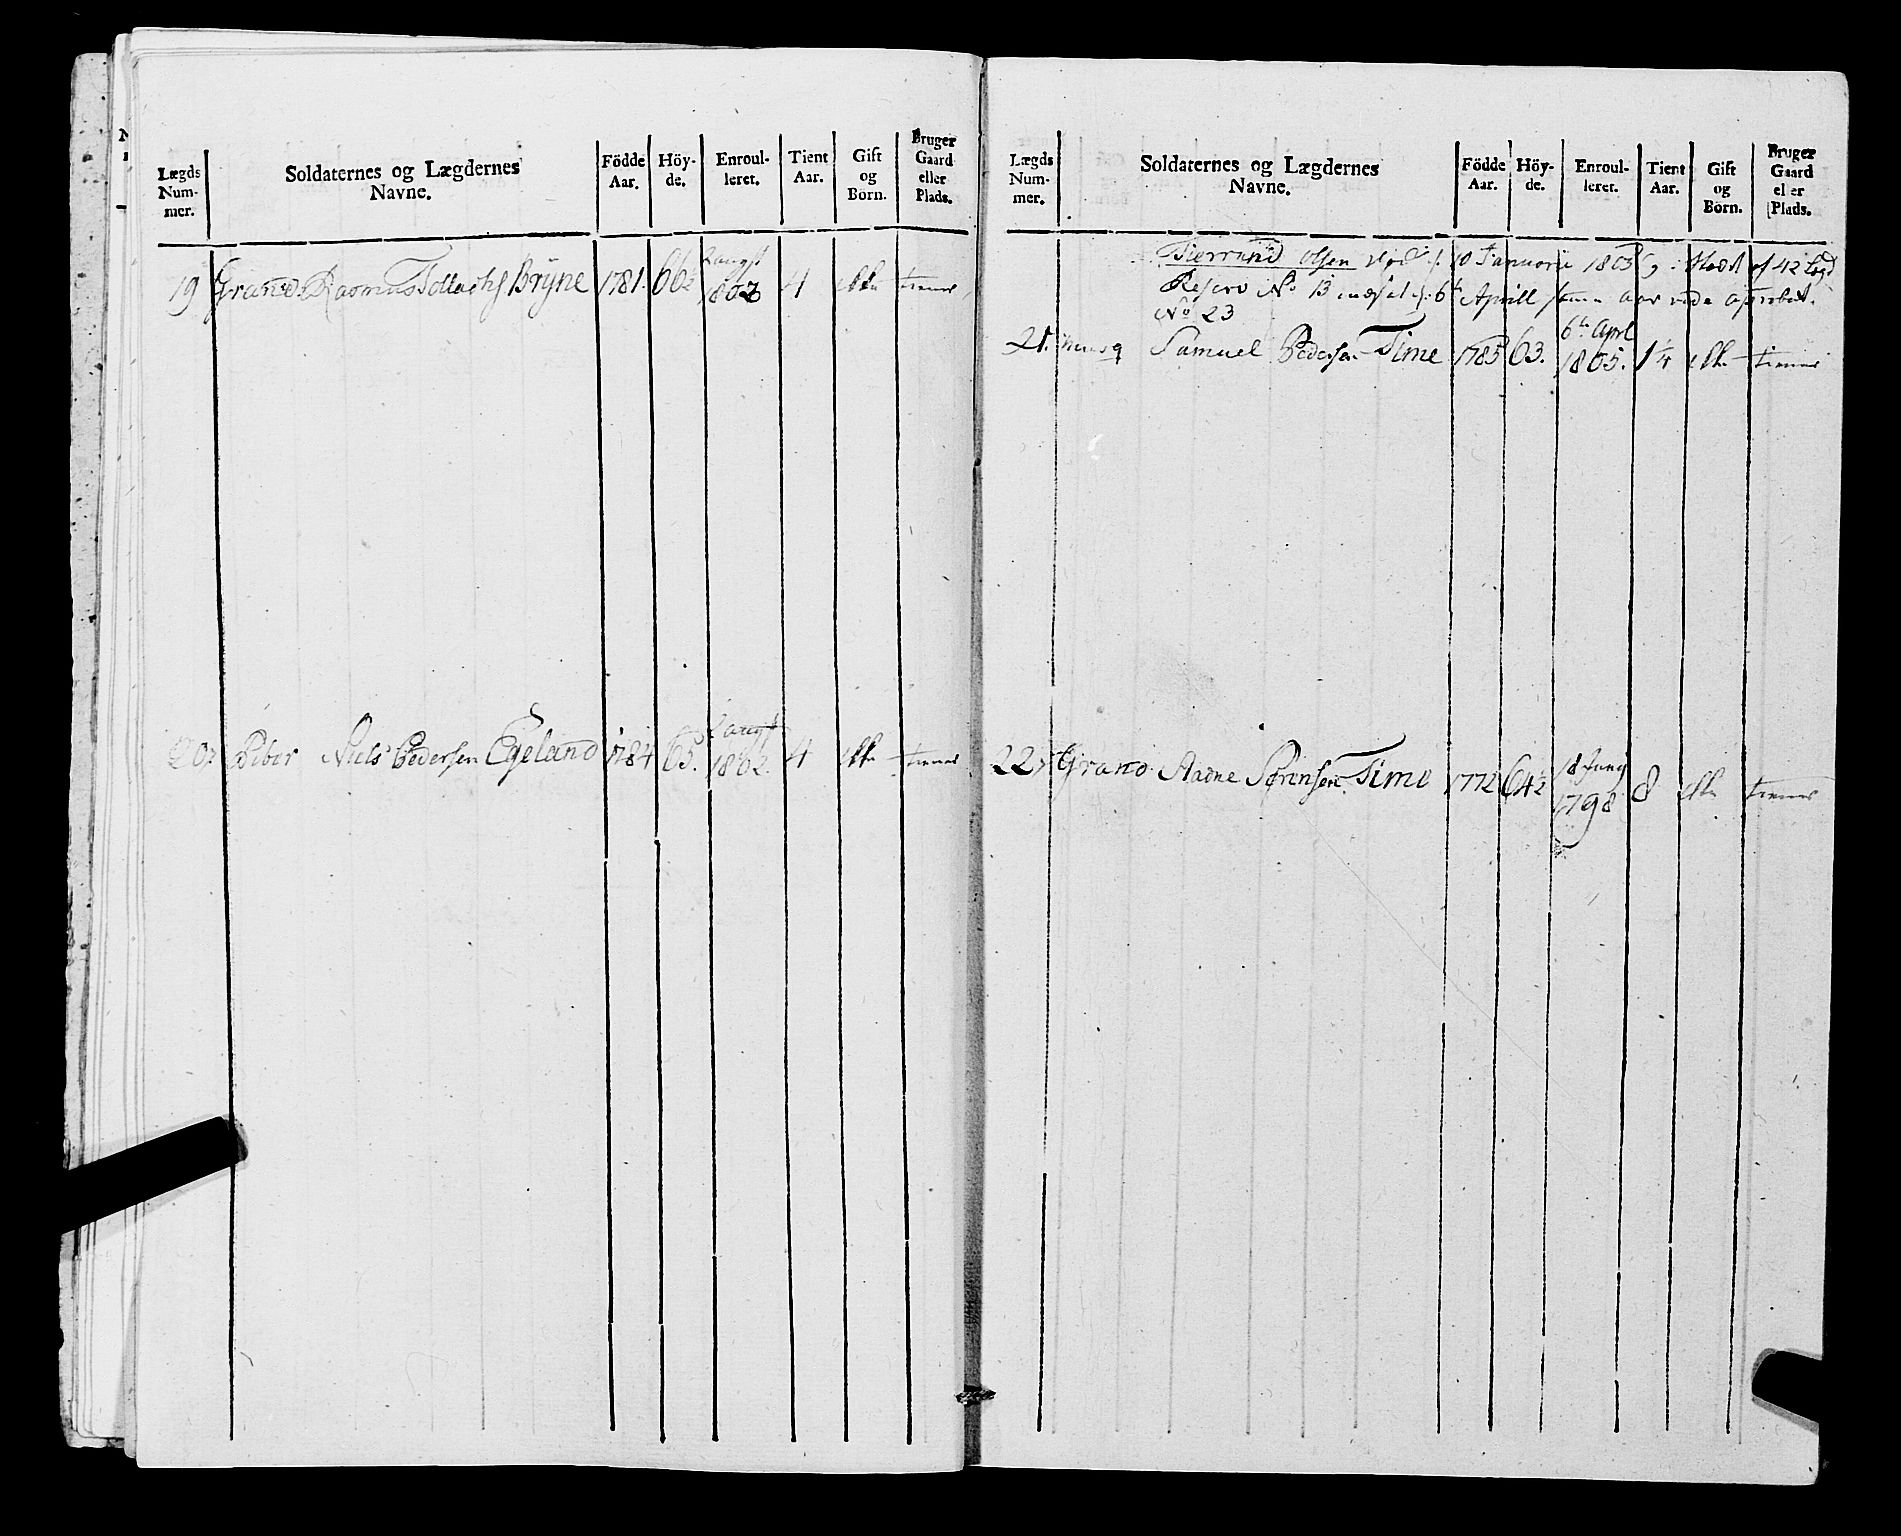 Lægds Num- mer.
Soldaternes og Lægdernes Navne.
Födde Aar.
Höy- de.
Enroul- leret.
Tient Aar.
Gift og Börn.
Bruger Gaard eller Plads.
19 Grand. Rasmus Tollachs Bryne 1781. 66½ 2 augst 1802 4 ikke tiener
20, Biber Niels Pedersen Egeland 1784 65. 2 augst 1802. 4 ikke tiener
Lægds Num- mer.
Soldaternes og Lægdernes Navne.
Födde Aar.
Höy- de.
Enroul- leret.
Tient Aar.
Gift og Börn.
Bruger Gaard el er Plads.
olsen død d. 10 Januari 1805 af 42 Lægd
Reserv No 13 indsat d. 6t Aprill samme aar vide aprobat.
No 23
21. Musq Samuel Pedersen Time 1785 63. 6te Aprl 1805. 1¼ ikke tiener
22, Grand. Aadne Sørensen Time 1772 64½ 18 Juny 1798 8 ikke tiener